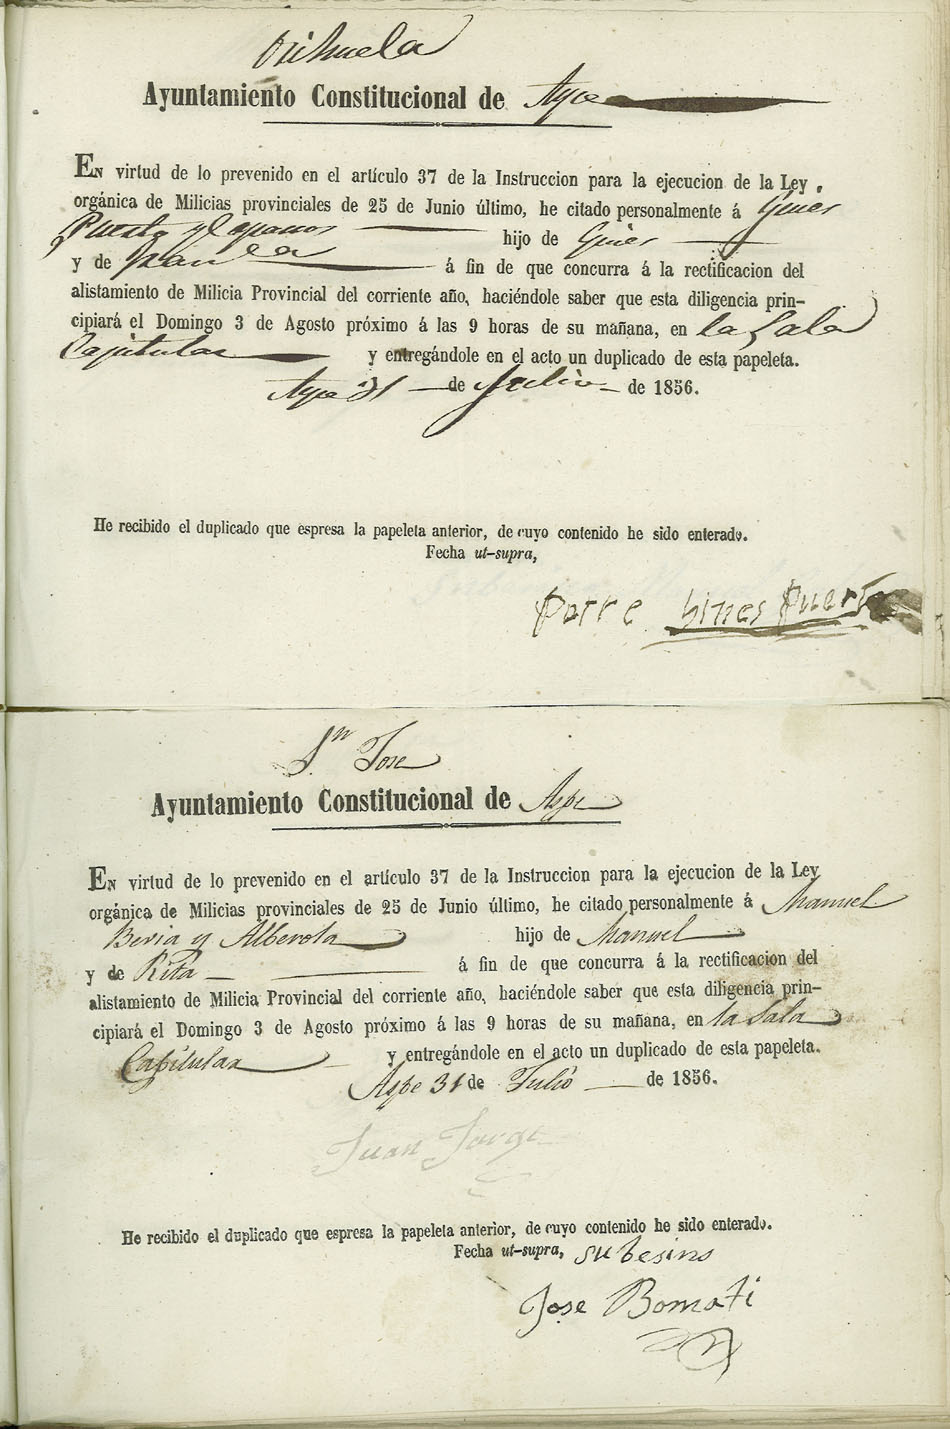 Orihuela
Ayuntamiento Constitucional de Aspe
EN virtud de lo prevenido en el artículo 37 de la Instruccion para la ejecucion de la Ley
orgánica de Milicias provinciales de 25 de Junio último, he citado personalmente á Gines
Puerto y hijo de Gines
y de á fin de que concurra á la rectificacion del
alistamiento de Milicia Provincial del corriente año, haciéndole saber que esta diligencia prin-
cipiará el Domingo 3 de Agosto próximo á las 9 horas de su mañana, en la Sala
Capitular y entregándole en el acto un duplicado de esta papeleta.
Aspe 31 de Julio de 1856.
He recibido el duplicado que espresa la papeleta anterior, de cuyo contenido he sido enterado.
Fecha ut-supra,
Parre Gines Puerto
Sn Jose
Ayuntamiento Constitucional de Aspe
EN virtud de lo prevenido en el artículo 37 de la Instruccion para la ejecucion de la Ley
orgánica de Milicias provinciales de 25 de Junio último, he citado personalmente á Manuel
Beria y Alberola hijo de Manuel
y de Rita á fin de que concurra á la rectificacion del
alistamiento de Milicia Provincial del corriente año, haciéndole saber que esta diligencia prin-
cipiará el Domingo 3 de Agosto próximo á las 9 horas de su mañana, en la Sala
Capitular y entregándole en el acto un duplicado de esta papeleta.
Aspe 31 de Julio de 1856.
Juan Jorge
He recibido el duplicado que espresa la papeleta anterior, de cuyo contenido he sido enterado.
Fecha ut-supra, su besino
Jose Bomati